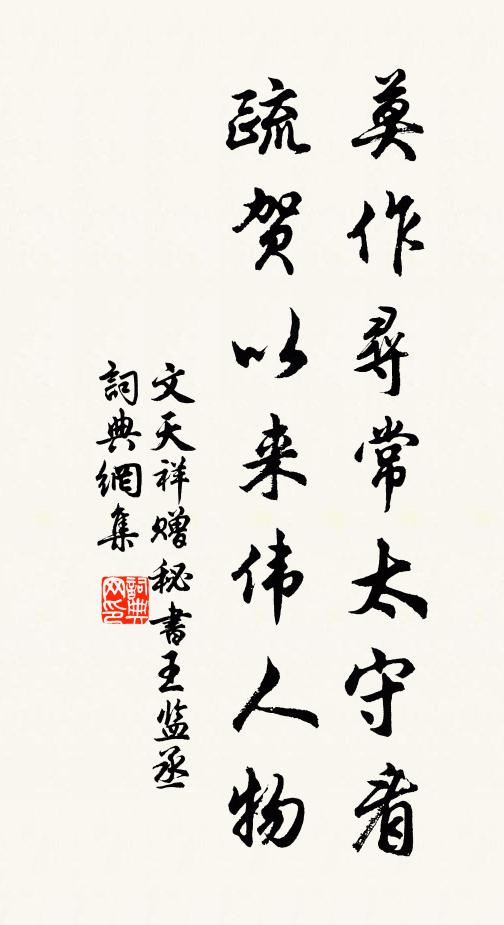 莫作尋常太守看
疏贺以来伟人物
文天祥赠秘書王监丞
詞典網集
詞典网印